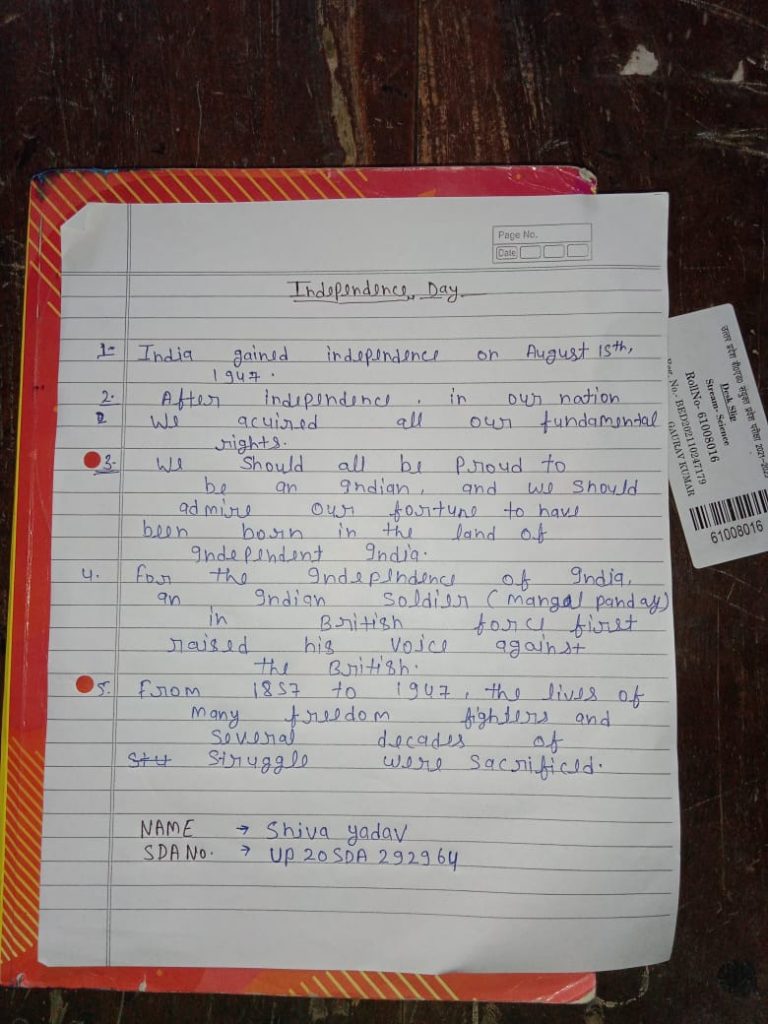 Page No.
Date
Independence Day
1- India gained independence on August 15th,
1947.
2. After independence, in our nation
2 We acuired all our fundamental
rights.
3- We should all be proud to
be an Indian, and we should
admire our fortune to have
been born in the land of
Independent India.
4. For the Independence of India,
an Indian Soldier (mangal panday)
in British force first
raised his voice against
the British.
5. From 1857 to 1947, the lives of
many freedom fighters and
several decades of
stu struggle were sacrificed.
NAME → Shiva yadav
SDA No. → UP 20 SDA 292964
उत्तर प्रदेश बीएड संयुक्त प्रवेश परीक्षा 2021-
Desk Slip
Stream:-Science
RollNo- 61008016
Reg. No.- BED202110247179
GAURAV KUMAR
61008016